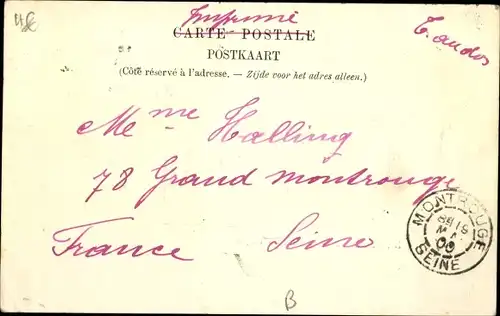 Imprimé
CARTE POSTALE
POSTKAART
(Côté réservé à l'adresse. — Zijde voor het adres alleen.)
Mme Halling
78 Grand montrouge
France Seine
MONTROUGE
SEINE
B